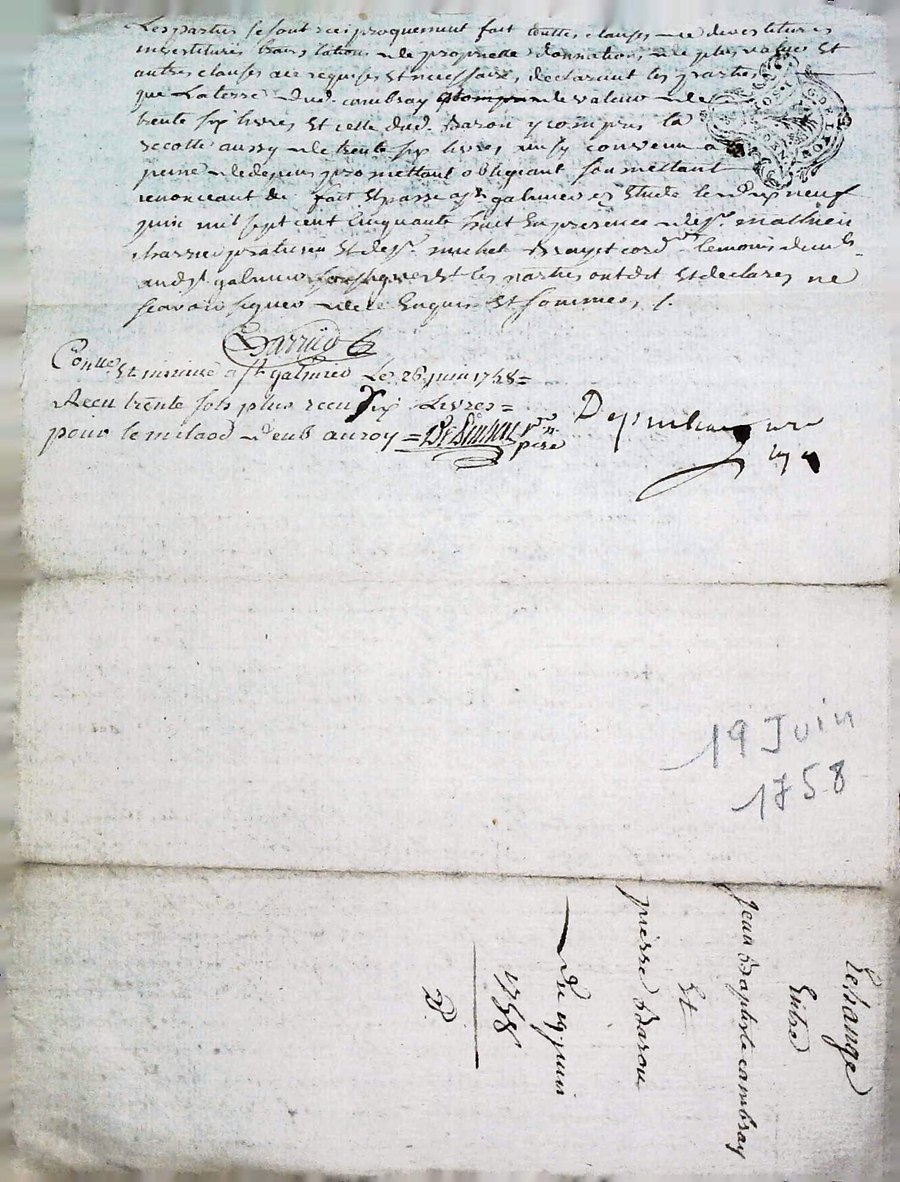 Les parties se sont reciproquement fait touttes clauses de devestitures
investitures translations de proprietté donnations de plus values Et
autres clauses à ce requises Et necessaires, declarant les parties
que La terre dud. cambray de valeur de
trente six livres Et celle dud. Barou y compris la
recolte aussy de trente six livres convenu a
peine de depens promettant obligeant soumettant
renonceant &c fait Et passé a st galmier Etude le dix neuf
juin mil sept cent Cinquante huit En presence de sr. mathieu
praticien Et de sr. michel cordr temoins
aud st galmier soussignes Et les parties ont dit Et declarés ne
scavoir signer de ce Enquis Et sommés /.
Conlle Et insinué a st galmier Le 26 juin 1758 =
Receu trente sols plus receu six Livres =
pour le milaod deub au roy =
19 Juin
1758
Echange
Entre
Jean Baptiste cambray
Et
pierre Barou
Du 19 juin
1758